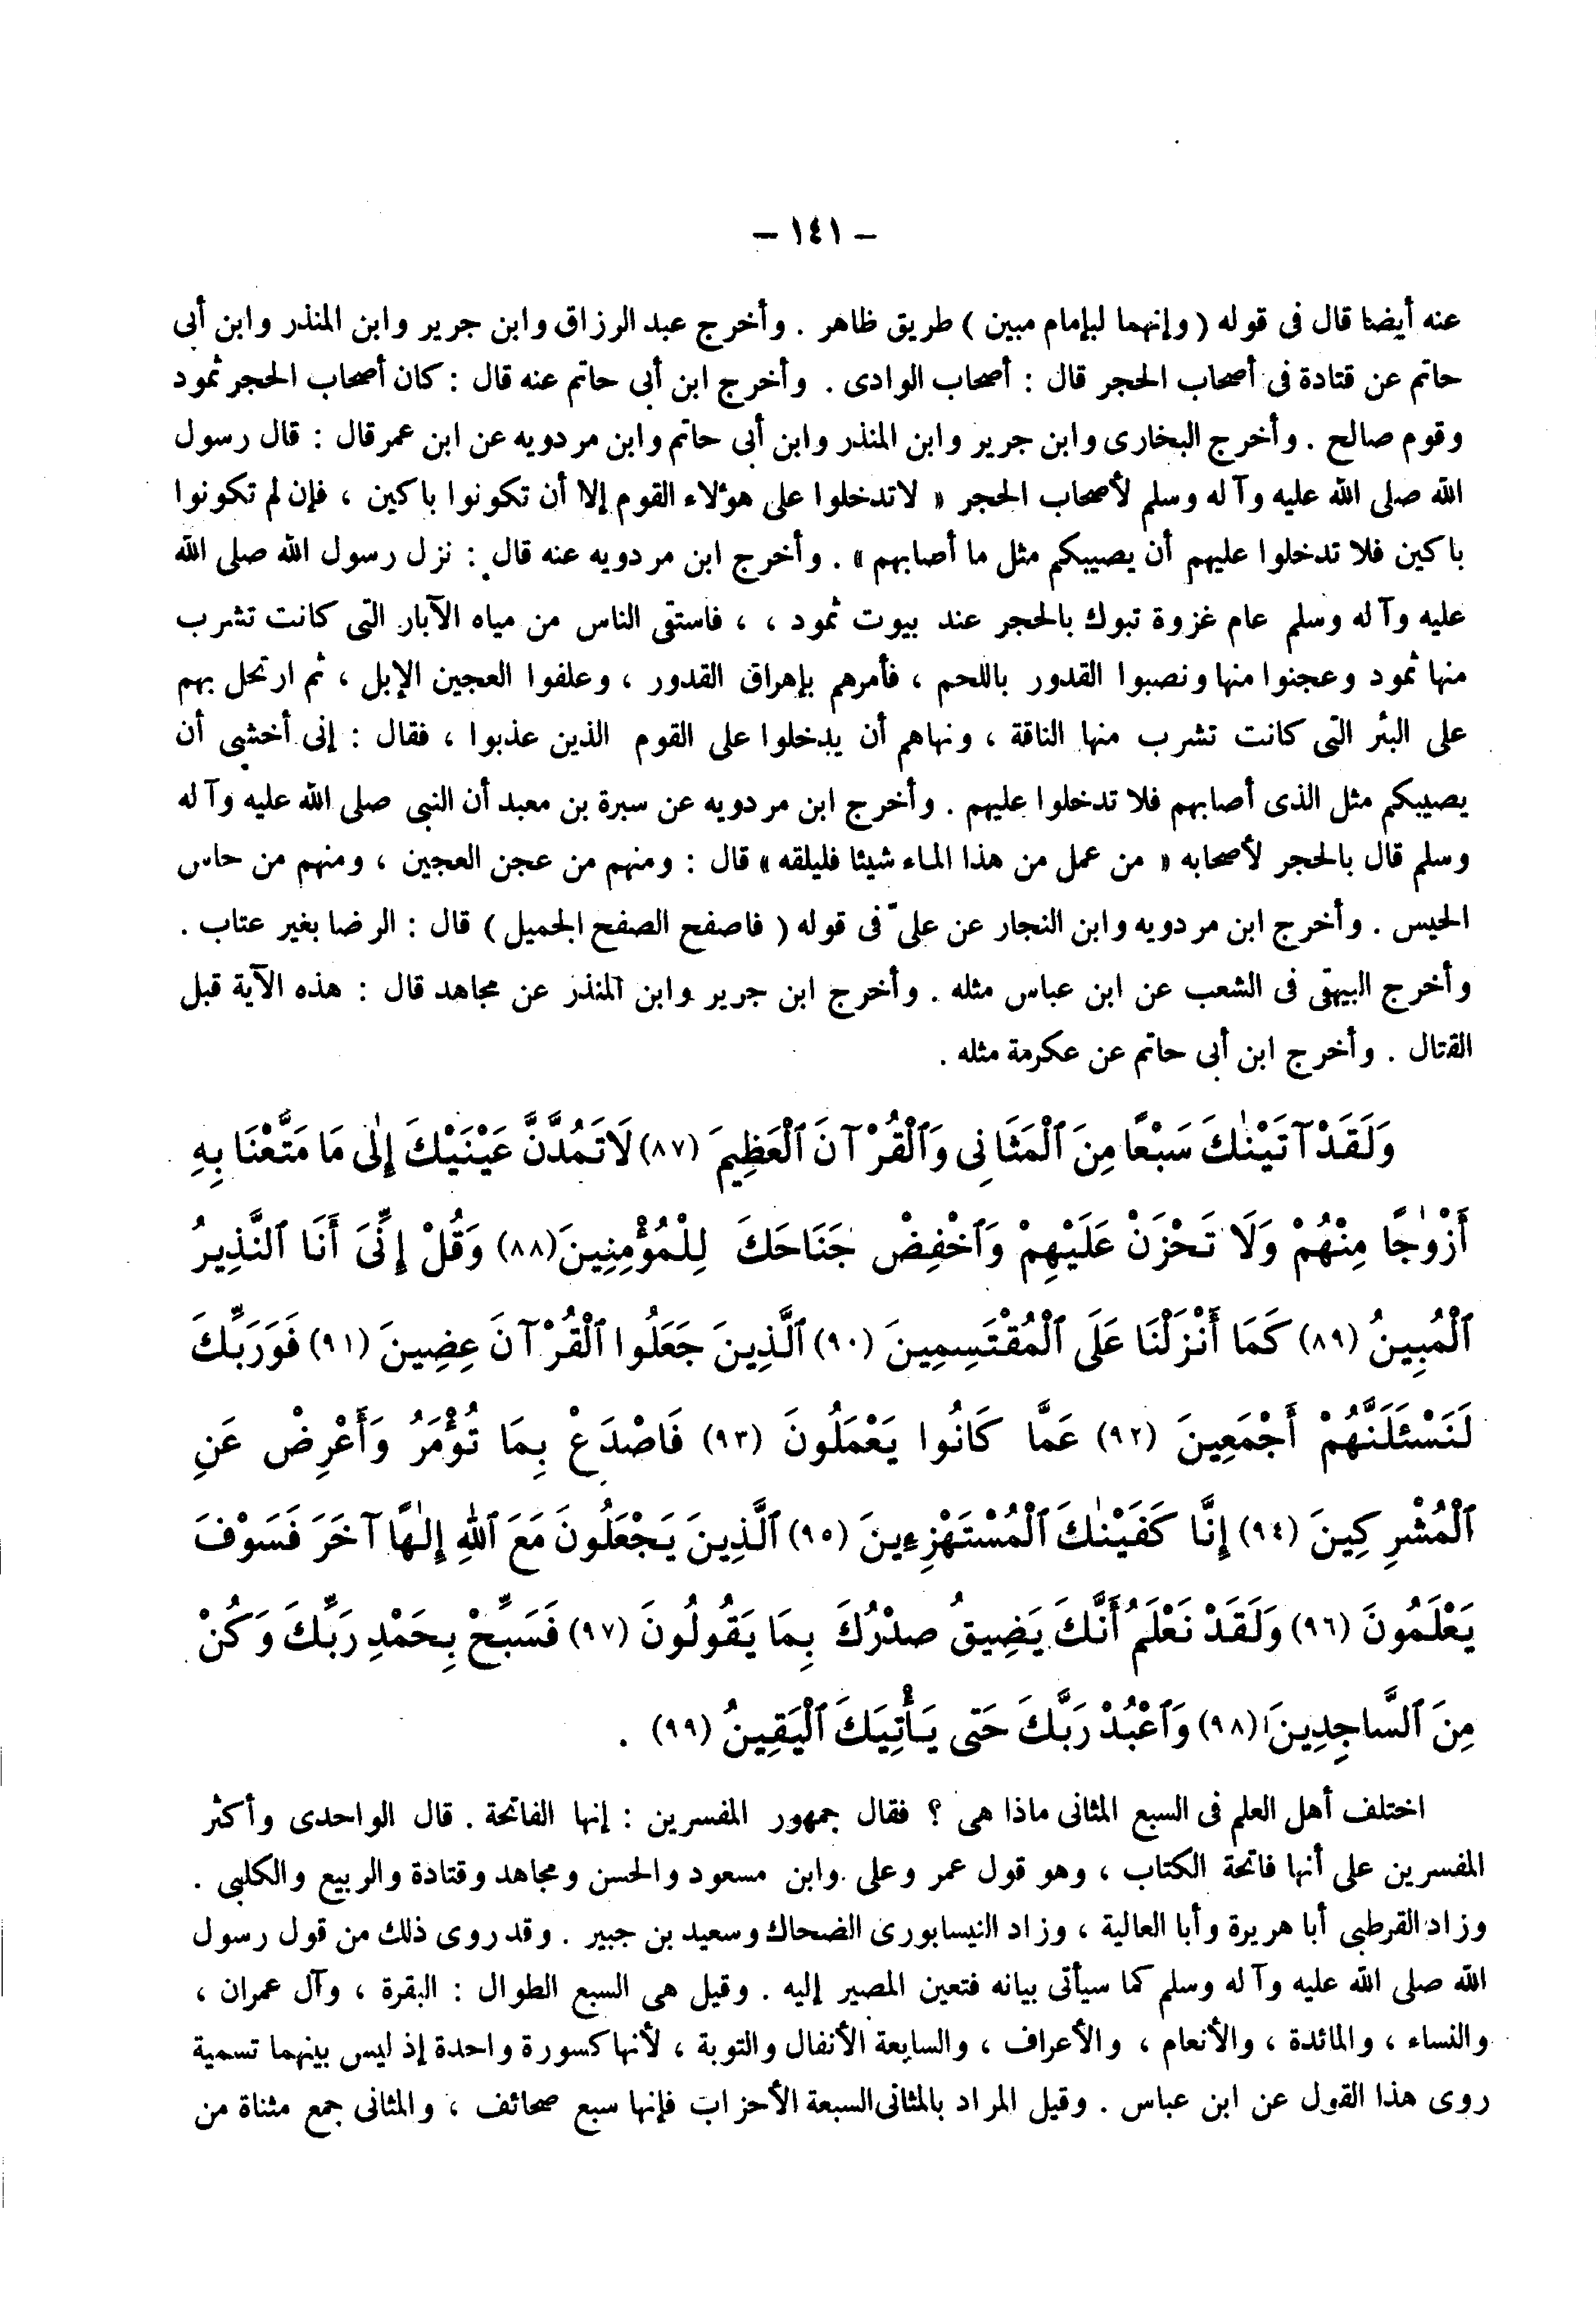 – ١٤١ –
عنه أيضا قال فى قوله ( وإنهما لبإمام مبين ) طريق ظاهر . وأخرج عبد الرزاق وابن جرير وابن المنذر وابن أبى
حاتم عن قتادة فى أصحاب الحجر قال : أصحاب الوادى . وأخرج ابن أبى حاتم عنه قال : كان أصحاب الحجر ثمود
وقوم صالح . وأخرج البخارى وابن جرير وابن المنذر وابن أبى حاتم وابن مردويه عن ابن عمر قال : قال رسول
الله صلى الله عليه وآله وسلم لأصحاب الحجر « لاتدخلوا على هؤلاء القوم إلا أن تكونوا باكين ، فإن لم تكونوا
باكين فلا تدخلوا عليهم أن يصيبكم مثل ما أصابهم » . وأخرج ابن مردويه عنه قال : نزل رسول الله صلى الله
عليه وآله وسلم عام غزوة تبوك بالحجر عند بيوت ثمود ، ، فاستقى الناس من مياه الآبار التى كانت تشرب
منها ثمود وعجنوا منها ونصبوا القدور باللحم ، فأمرهم بإهراق القدور ، وعلفوا العجين الإبل ، ثم ارتحل بهم
على البئر التى كانت تشرب منها الناقة ، ونهاهم أن يدخلوا على القوم الذين عذبوا ، فقال : إنى أخشى أن
يصيبكم مثل الذى أصابهم فلا تدخلوا عليهم . وأخرج ابن مردويه عن سبرة بن معبد أن النبى صلى الله عليه وآله
وسلم قال بالحجر لأصحابه « من عمل من هذا الماء شيئا فليلقه » قال : ومنهم من عجن العجين ، ومنهم من حاس
الحيس . وأخرج ابن مردويه وابن النجار عن علىّ فى قوله ( فاصفح الصفح الجميل ) قال : الرضا بغير عتاب .
وأخرج البيهقى فى الشعب عن ابن عباس مثله . وأخرج ابن جرير وابن المنذر عن مجاهد قال : هذه الآية قبل
القتال . وأخرج ابن أبى حاتم عن عكرمة مثله .
وَلَقَدْ آتَيْنٰكَ سَبْعًا مِنَ ٱلْمَثَانِى وَٱلْقُرْآنَ ٱلْعَظِيمَ (٨٧) لَاتَمُدَّنَّ عَيْنَيْكَ إِلٰى مَا مَتَّعْنَا بِهِ
أَزْوٰجًا مِنْهُمْ وَلَا تَحْزَنْ عَلَيْهِمْ وَٱخْفِضْ جَنَاحَكَ لِلْمُؤْمِنِينَ (٨٨) وَقُلْ إِنِّىَ أَنَا ٱلنَّذِيرُ
ٱلْمُبِينُ (٨٩) كَمَا أَنْزَلْنَا عَلَى ٱلْمُقْتَسِمِينَ (٩٠) ٱلَّذِينَ جَعَلُوا ٱلْقُرْآنَ عِضِينَ (٩١) فَوَرَبِّكَ
لَنَسْئَلَنَّهُمْ أَجْمَعِينَ (٩٢) عَمَّا كَانُوا يَعْمَلُونَ (٩٣) فَاصْدَعْ بِمَا تُؤْمَرُ وَأَعْرِضْ عَنِ
ٱلْمُشْرِكِينَ (٩٤) إِنَّا كَفَيْنٰكَ ٱلْمُسْتَهْزِءِينَ (٩٥) ٱلَّذِينَ يَجْعَلُونَ مَعَ ٱللهِ إِلٰهًا آخَرَ فَسَوْفَ
يَعْلَمُونَ (٩٦) وَلَقَدْ نَعْلَمُ أَنَّكَ يَضِيقُ صدْرُكَ بِمَا يَقُولُونَ (٩٧) فَسَبِّحْ بِحَمْدِ رَبِّكَ وَكُنْ
مِنَ ٱلسَّاجِدِينَ (٩٨) وَٱعْبُدْ رَبَّكَ حَتى يَأْتِيَكَ ٱلْيَقِينُ (٩٩) .
اختلف أهل العلم فى السبع المثانى ماذا هى ؟ فقال جمهور المفسرين : إنها الفاتحة . قال الواحدى وأكثر
المفسرين على أنها فاتحة الكتاب ، وهو قول عمر وعلى وابن مسعود والحسن ومجاهد وقتادة والربيع والكلبى .
وزاد القرطبى أبا هريرة وأبا العالية ، وزاد النيسابورى الضحاك وسعيد بن جبير . وقد روى ذلك من قول رسول
الله صلى الله عليه وآله وسلم كما سيأتى بيانه فتعين المصير إليه . وقيل هى السبع الطوال : البقرة ، وآل عمران ،
والنساء ، والمائدة ، والأنعام ، والأعراف ، والسابعة الأنفال والتوبة ، لأنها كسورة واحدة إذ ليس بينهما تسمية
روى هذا القول عن ابن عباس . وقيل المراد بالمثانى السبعة الأحزاب فإنها سبع صحائف ، والمثانى جمع مثناة من